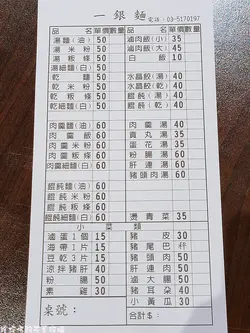 一銀麵
電話：03-5170197
品名 單價 數量 品名 單價 數量
湯麵（油） 50 滷肉飯（小） 35
湯米粉 50 滷肉飯（大） 45
湯粄條 50 白飯 10
湯細麵（白） 60
乾麵 50 水晶餃（湯） 40
乾米粉 50 水晶餃（乾） 40
乾粄條 50 餛飩（湯） 40
乾細麵（白） 60 餛飩（乾） 40
肉羹麵（油） 60 肉羹湯 40
肉羹飯 60 貢丸湯 30
肉羹米粉 60 蛋花湯 35
肉羹粄條 60 粉腸湯 60
肉羹細麵（白） 60 肝連湯 60
豬頭肉湯 60
餛飩麵（油） 60
餛飩米粉 60
餛飩粄條 60
餛飩細麵（白） 60 燙青菜 35
小菜類
滷蛋1個 15 豬皮 30
海帶1片 15 豬尾巴
豆乾3片 15 豬頭肉 50
涼拌豬肝 40 肝連肉 50
粉腸 50 滷大腸 50
素雞 30 豬耳朵 40
小黃瓜 30
桌號： 合計$：